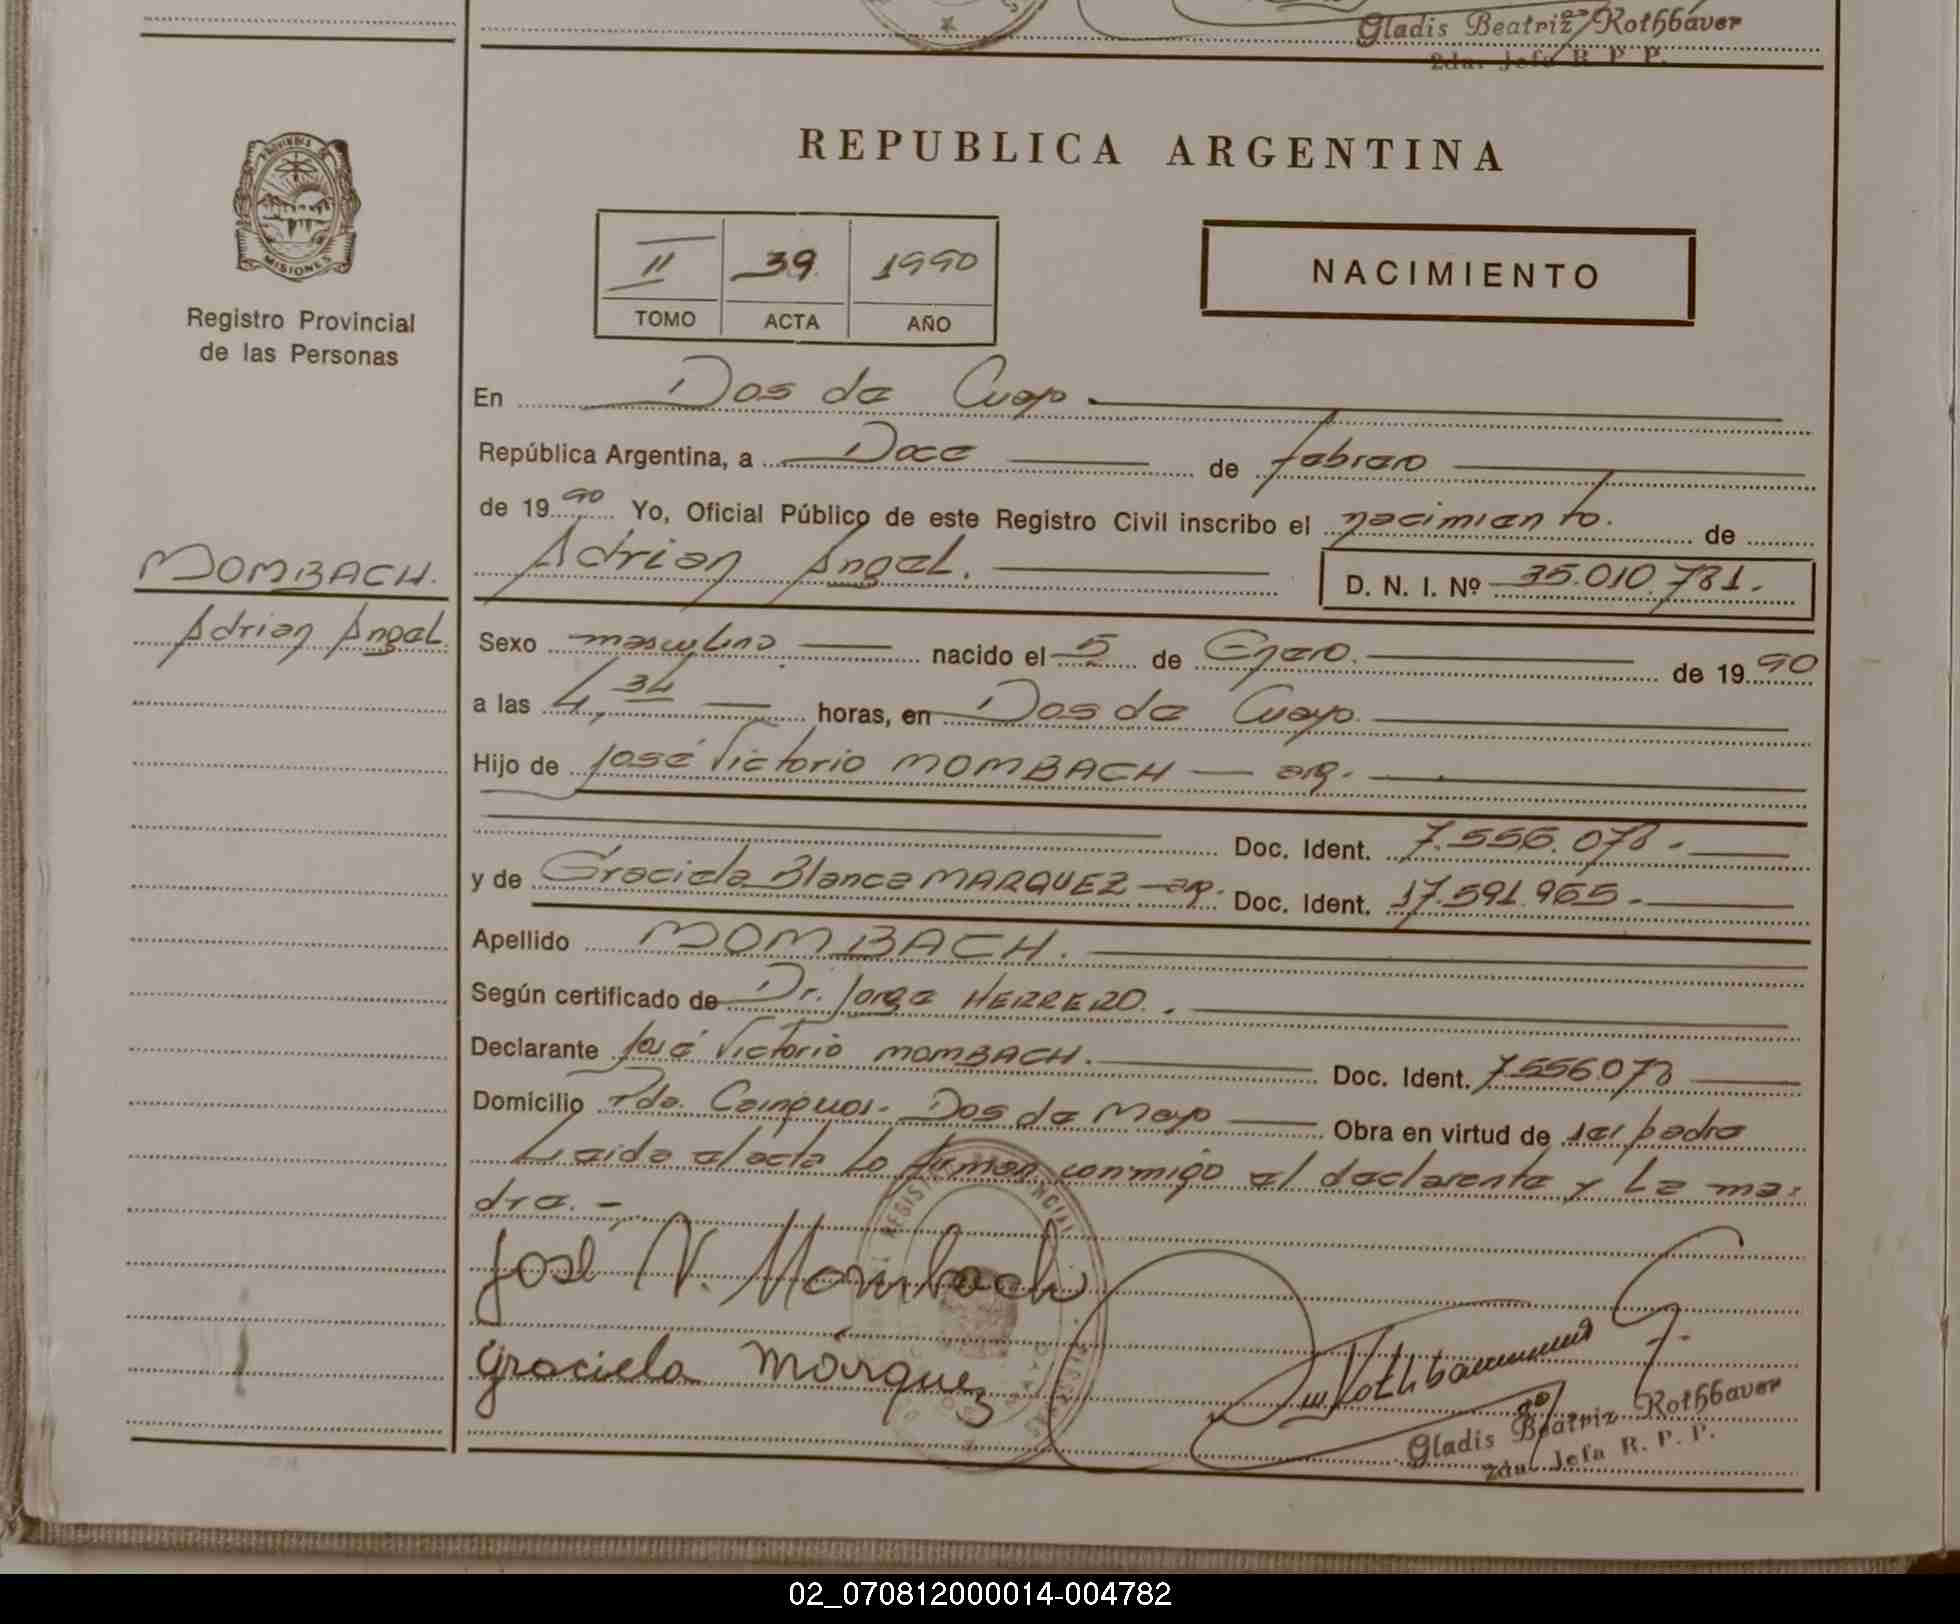 Gladis Beatriz Rothbaver
2da. Jefa R. P. P.
PROVINCIA DE
MISIONES
Registro Provincial
de las Personas
MOMBACH.
Adrian Angel.
REPUBLICA ARGENTINA
II 39 1990
TOMO ACTA AÑO
NACIMIENTO
En Dos de Mayo
República Argentina, a Doce de febrero
de 1990 Yo, Oficial Público de este Registro Civil inscribo el nacimiento. de
Adrian Angel. D. N. I. Nº 35.010.781.-
Sexo masculino nacido el 5 de Enero. de 1990
a las 4,34 horas, en Dos de Mayo.
Hijo de José Victorio MOMBACH — arg.
Doc. Ident. 7.556.078.-
y de Graciela Blanca MARQUEZ - arg. Doc. Ident. 17.591.965.-
Apellido MOMBACH.
Según certificado de Dr. Jorge HERRERO.
Declarante José Victorio MOMBACH. Doc. Ident. 7.556.078
Domicilio Pda. Dos de Mayo Obra en virtud de ser padre
Leida el acta lo firman conmigo el declarante y la ma-
dre.-
José V. Mombach
Graciela Márquez
Gladis Beatriz Rothbaver
2da. Jefa R. P. P.
02_070812000014-004782